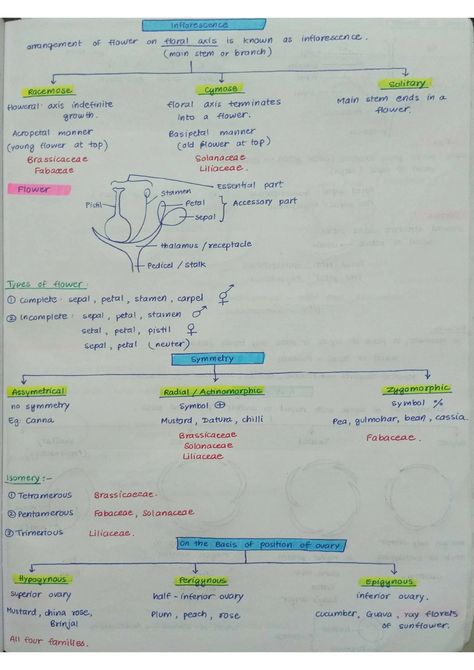 Inflorescence
arrangement of flower on floral axis is known as inflorescence.
(main stem or branch)
Racemose
floweral axis indefinite
growth.
Acropetal manner
(young flower at top)
Brassicaceae
Fabaceae
Cymose
floral axis terminates
into a flower.
Basipetal manner
(old flower at top)
Solanaceae
Liliaceae.
Solitary
Main stem ends in a
flower.
Flower
Essential part
Stamen
Pistil
Petal
Sepal
Accessory part
thalamus / receptacle
Pedicel / Stalk
Types of flower:
① Complete: sepal, petal, stamen, carpel ⚥
② Incomplete: sepal, petal, stamen ♂
setal, petal, pistil ♀
sepal, petal (neuter)
Symmetry
Assymetrical
no symmetry
Eg. Canna
Radial / Actinomorphic
Symbol ⊕
Mustard, Datura, chilli
Brassicaceae
Solanaceae
Liliaceae
Zygomorphic
Symbol %
Pea, gulmohar, bean, cassia.
Fabaceae.
Isomery:-
① Tetramerous Brassicaceae.
② Pentamerous Fabaceae, Solanaceae
③ Trimerious Liliaceae.
On the Basis of position of ovary
Hypogynous
superior ovary
Mustard, china rose,
Brinjal
All four families.
Perigynous
half-inferior ovary
Plum, peach, rose
Epigynous
inferior ovary.
cucumber, Guava, ray florets
of sunflower.